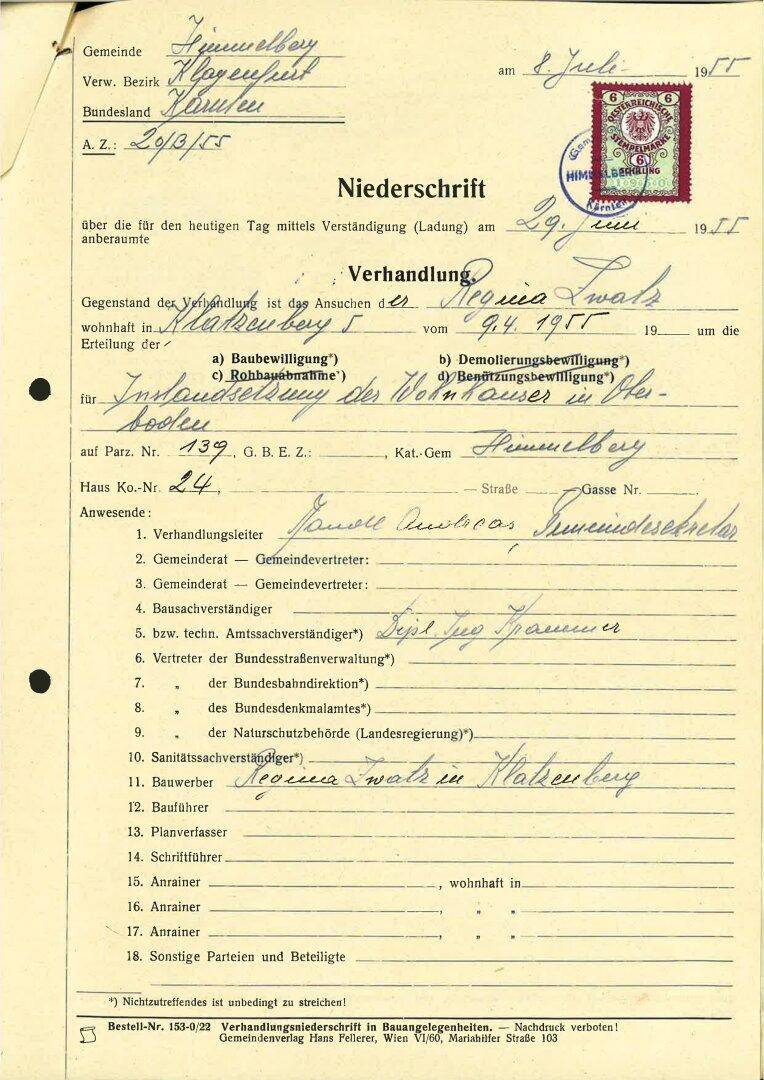 Gemeinde Himmelberg
am 8. Juli 1955
Verw. Bezirk Klagenfurt
Bundesland Kärnten
A. Z.: 20/B/55
6 6
OESTERREICHISCHE
STEMPELMARKE
6
SCHILLING
HIMMELBERG
Kärnten
Niederschrift
über die für den heutigen Tag mittels Verständigung (Ladung) am 29. Juni 1955
anberaumte
Verhandlung.
Gegenstand der Verhandlung ist das Ansuchen der Regina Zwatz
wohnhaft in Klatzenberg 5 vom 9.4.1955 19 um die
Erteilung der
a) Baubewilligung*) b) Demolierungsbewilligung*)
c) Rohbauabnahme*) d) Benützungsbewilligung*)
für Instandsetzung des Wohnhauses in Ober-
boden
auf Parz. Nr. 139, G. B. E. Z.: , Kat.-Gem Himmelberg
Haus Ko.-Nr. 24, — Straße — Gasse Nr.
Anwesende:
1. Verhandlungsleiter Andreas Gemeindesekretär
2. Gemeinderat — Gemeindevertreter:
3. Gemeinderat — Gemeindevertreter:
4. Bausachverständiger
5. bzw. techn. Amtssachverständiger*) Dipl. Ing Krammer
6. Vertreter der Bundesstraßenverwaltung*)
7. „ der Bundesbahndirektion*)
8. „ des Bundesdenkmalamtes*)
9. „ der Naturschutzbehörde (Landesregierung)*)
10. Sanitätssachverständiger*)
11. Bauwerber Regina Zwatz in Klatzenberg
12. Bauführer
13. Planverfasser
14. Schriftführer
15. Anrainer , wohnhaft in
16. Anrainer , „ „
17. Anrainer , „ „
18. Sonstige Parteien und Beteiligte
*) Nichtzutreffendes ist unbedingt zu streichen!
Bestell-Nr. 153-0/22 Verhandlungsniederschrift in Bauangelegenheiten. — Nachdruck verboten!
Gemeindenverlag Hans Fellerer, Wien VI/60, Mariahilfer Straße 103